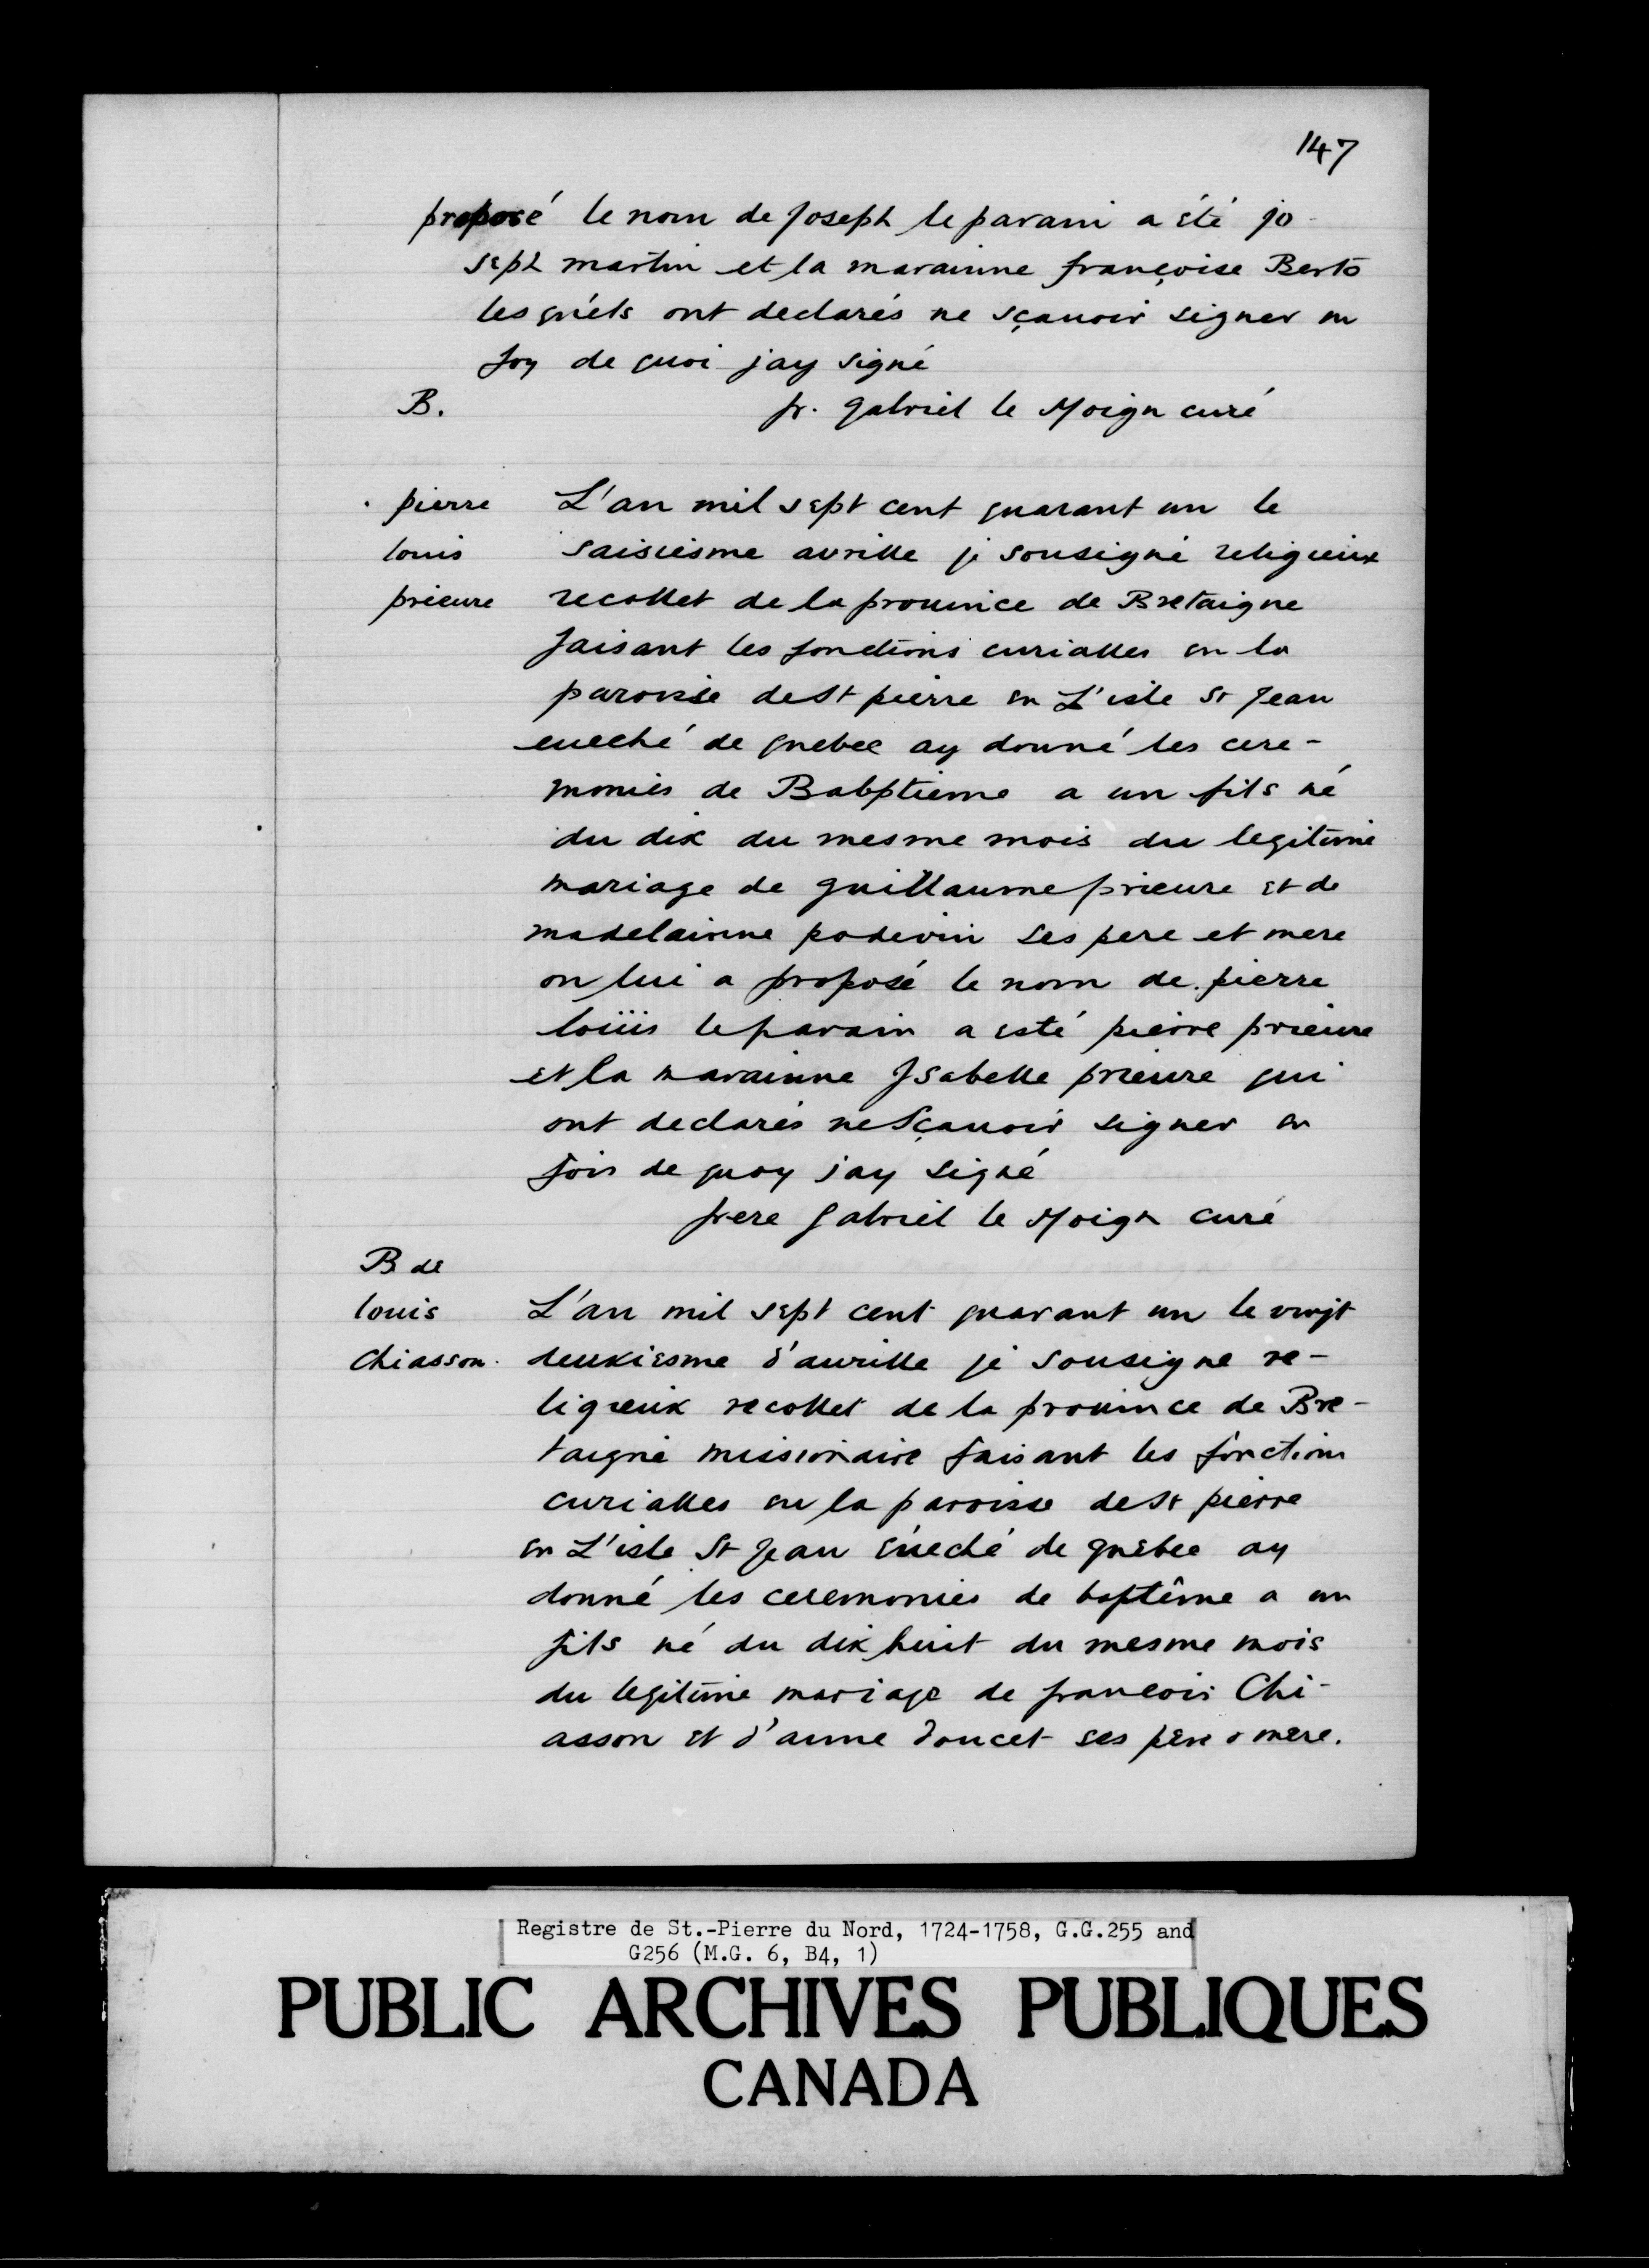 147
proposé le nom de Joseph le parain a été jo
seph martin et la marainne françoise Berto
lesquels ont declarés ne sçauoir signer en
foy de quoi jay signé
B. fr. gabriel le Moign curé
pierre L'an mil sept cent quarant un le
louis saisiesme avrille je sousigné religieux
prieure recollet de la prouince de Bretaigne
faisant les fonctions curialles en la
paroisse de St pierre en L'isle St Jean
eueché de quebec ay donné les cere-
monies de Babptieme a un fils né
du dix du mesme mois du legitime
mariage de guillaume prieure et de
madelainne podevin ses pere et mere
on lui a proposé le nom de pierre
loüis le parain a esté pierre prieure
et la marainne Jsabelle prieure qui
ont declarés ne Sçauoir signer en
fois de quoy jay signé
frere gabriel le Moign curé
B de
louis L'an mil sept cent quarant un le vingt
Chiasson. deuxiesme d'aurille je sousigne re-
ligieux recollet de la prouince de Bre-
taigne missionaire faisant les fonction
curialles en la paroisse de St pierre
en L'isle St Jean éueché de quebec ay
donné les ceremonies de baptême a un
fils né du dix huit du mesme mois
du legitime mariage de francois Chi-
asson et d'anne doucet ses pere & mere.
Registre de St.-Pierre du Nord, 1724-1758, G.G.255 and
G256 (M.G. 6, B4, 1)
PUBLIC ARCHIVES PUBLIQUES
CANADA